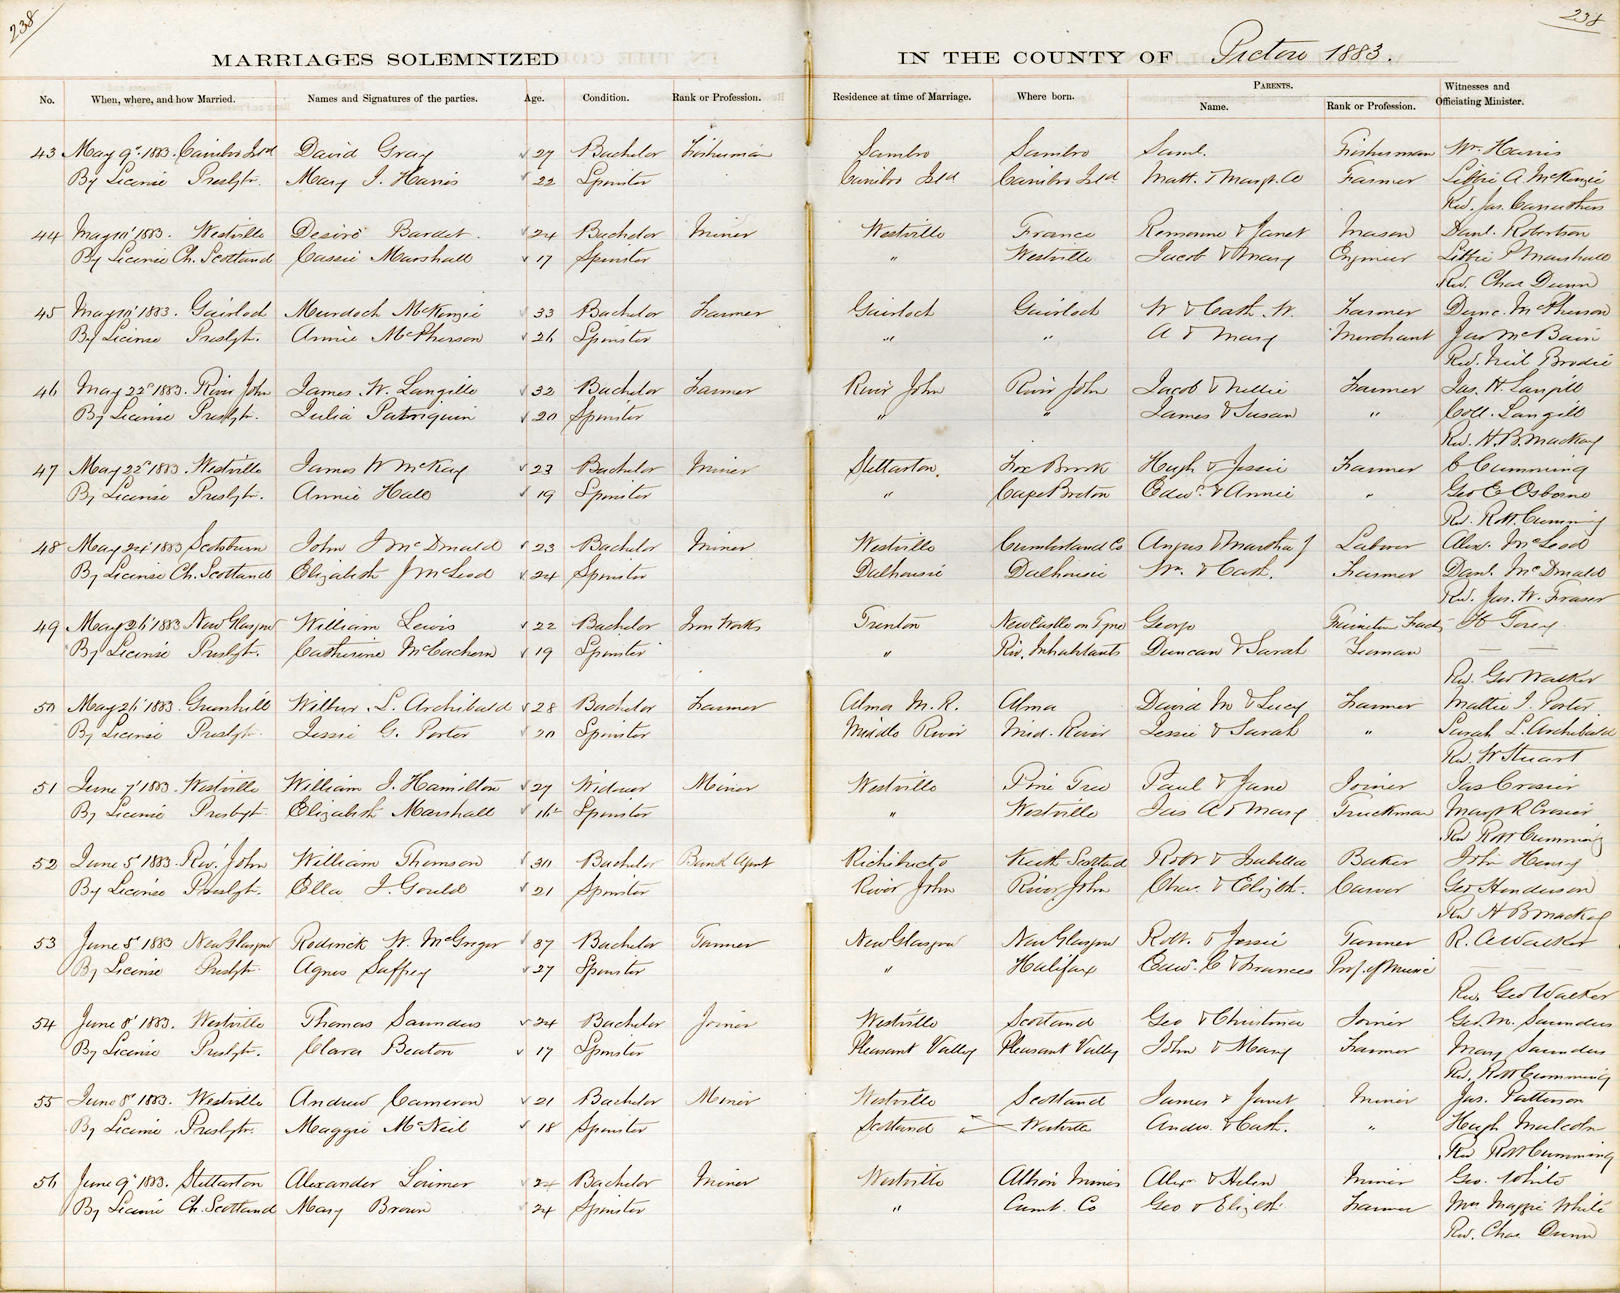 238
238
MARRIAGES SOLEMNIZED IN THE COUNTY OF Pictou 1883.
No. When, where, and how Married. Names and Signatures of the parties. Age. Condition. Rank or Profession. Residence at time of Marriage. Where born. PARENTS. Name. Rank or Profession. Witnesses and Officiating Minister.
43 May 9" 1883. Caribou Isld David Gray 27 Bachelor Fisherman Sambro Sambro Saml. Fisherman Wm Harris
By License Presbytr. Mary J. Harris 22 Spinster Caribou Isld Caribou Isld Matt. & Margt. A Farmer Libbie A. McKenzie
Rev. Jas. Carruthers
44 May 10' 1883. Westville Desiré Bardet. 24 Bachelor Miner Westville France & Janet Mason Danl. Robertson
By License Ch. Scotland Cassie Marshall 17 Spinster " Westville Jacob & Mary Engineer Libbie P Marshall
Rev. Chas Dunn
45 May 11' 1883. Gairloch Murdoch McKenzie 33 Bachelor Farmer Gairloch Gairloch W & Cath. W. Farmer Dunc. McPherson
By License Presbyt. Annie McPherson 26 Spinster " " A & Mary Merchant Jas McBain
Rev. Neil Brodie
46 May 22' 1883. River John James W. Langille 32 Bachelor Farmer River John River John Jacob & Nellie Farmer Jas. H. Langill
By License Presbyt. Julia Patriquin 20 Spinster " " James & Susan " Coll. Langill
Rev. H. B. Mackay
47 May 22' 1883. Westville James W McKay 23 Bachelor Miner Stellarton. Fox Brook Hugh & Jessie Farmer C Cumming
By License Presbytr. Annie Hall 19 Spinster " Cape Breton Edwd. & Annie " Geo E Osborne
Rev. Robt. Cumming
48 May 24' 1883 Scotsburn John J McDonald 23 Bachelor Miner Westville Cumberland Co Angus & Martha J Laborer Alex. McLeod
By License Ch. Scotland Elizabeth J McLeod 24 Spinster Dalhousie Dalhousie Wm. & Cath. Farmer Danl. McDonald
Rev. Jas. W. Fraser
49 May 26' 1883 New Glasgow William Lewis 22 Bachelor Iron Works Trenton New Castle on Tyne George H Torey
By License Presbyt. Catherine McEachern 19 Spinster " Riv. Inhabitants Duncan & Sarah Yeoman — —
Rev. Geo Walker
50 May 26' 1883. Greenhill Wilbur. L. Archibald 28 Bachelor Farmer Alma M. R. Alma David M & Lucy Farmer Mattie J. Porter
By License Presbyt. Jessie G. Porter 20 Spinster Middle River Mid. River Jessie & Sarah " Sarah L. Archibald
Rev. W Stuart
51 June 7' 1883. Westville William J. Hamilton 27 Widower Miner Westville Pine Tree Paul & Jane Joiner Jas Crosier
By License Presbyt. Elizabeth Marshall 16½ Spinster " Westville Jas A & Mary Truckman Margt R Crosier
Rev Robt Cumming
52 June 5' 1883. Riv. John William Thomson 30 Bachelor Bank Agent Richibucto Keith Scotland Robt & Isabella Baker John Henry
By License Presbyt. Ella J. Gould 21 Spinster River John River John Chas. & Elizth. Carver Geo Henderson
Rev H B Mackay
53 June 5' 1883 New Glasgow Roderick W. McGregor 37 Bachelor Tanner New Glasgow New Glasgow Robt. & Jessie Tanner R. A Walker
By License Presbyt. Agnes Saffrey 27 Spinster " Halifax Edw. C & Frances Prof. of Music
Rev. Geo Walker
54 June 8' 1883. Westville Thomas Saunders 24 Bachelor Joiner Westville Scotland Geo & Christina Joiner Geo. M. Saunders
By License Presbyt. Clara Beaton 17 Spinster Pleasant Valley Pleasant Valley John & Mary Farmer Mary Saunders
Rev. Robt Cumming
55 June 8' 1883. Westville Andrew Cameron 21 Bachelor Miner Westville Scotland James & Janet Miner Jas. Patterson
By License Presbytr. Maggie McNeil 18 Spinster Scotland Westville Andw. & Cath. " Hugh Malcolm
Rev Robt Cumming
56 June 9' 1883. Stellarton Alexander Lorimer 24 Bachelor Miner Westville Albion Mines Alexr & Helen Miner Geo. White
By License Ch. Scotland Mary Brown 24 Spinster " Cumb. Co Geo & Elizth. Farmer Mrs Maggie White
Rev. Chas Dunn